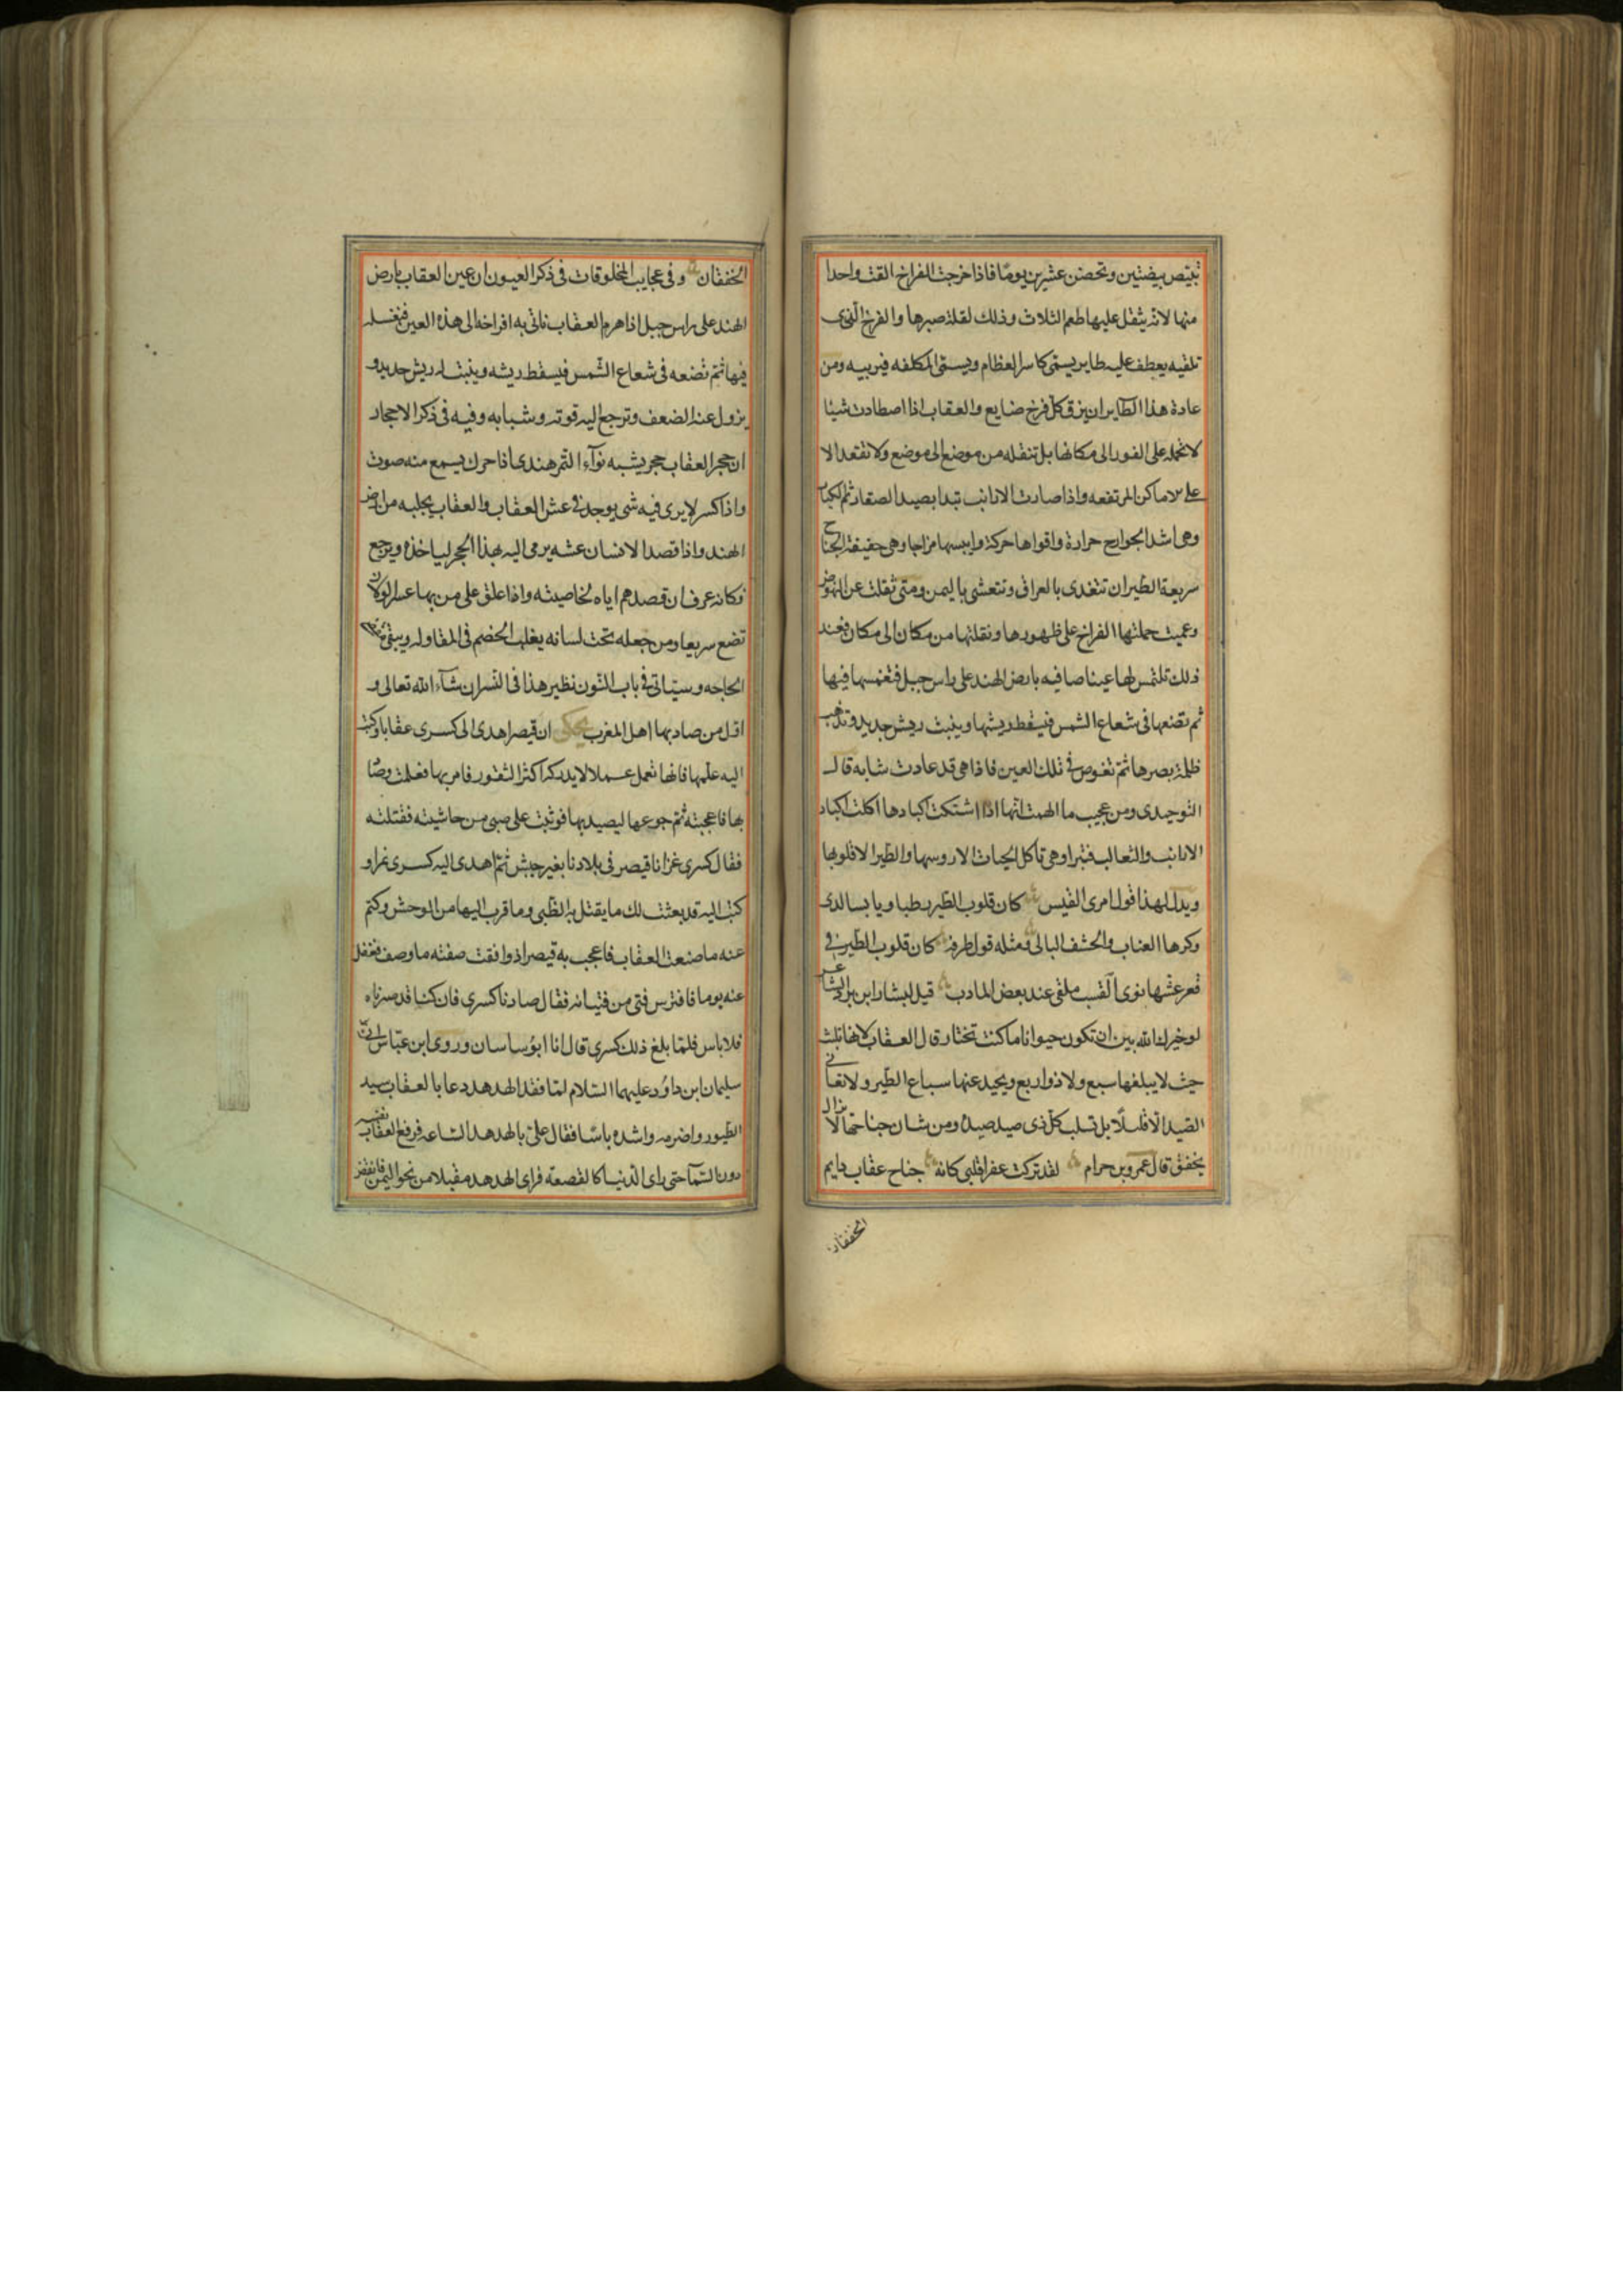 تبيض بيضتين وتحضن عشرين يوما فاذا خرجت الفراخ القت واحدا
منها لانه يثقل عليها طعم الثلاث وذلك لقلة صبرها والفرخ الذى
تلقيه يعطف عليه طاير يسمى كاسر العظام ويسمى المكلفه فيربيه ومن
عادة هذا الطاير ان يزق كل فرخ ضايع والعقاب اذا اصطادت شيئا
لا تحمله على الفور الى مكانها بل تنقله من موضع الى موضع ولا تقعد الا
على الاماكن المرتفعه واذا صادت الارانب تبدا بصيد الصغار ثم الكبار
وهى اشد الجوارح حرارة واقواها حركة وايبسها مزاجا وهى خفيفة الجناح
سريعة الطيران تتغدى بالعراق وتتعشى باليمن ومتى ثقلت عن النهوض
وعميت حملتها الفراخ على ظهورها ونقلتها من مكان الى مكان فعند
ذلك تلتمس لها عينا صافيه بارض الهند على راس جبل فتغمسها فيها
ثم تضعها فى شعاع الشمس فيسقط ريشها وينبت ريش جديد وتذهب
ظلمة بصرها ثم تغوص فى تلك العين فاذا هى قد عادت شابه قال
التوحيدى ومن عجيب ما الهمت انها اذا اشتكت اكبادها اكلت اكباد
الارانب والثعالب فتبرا وهى تاكل الحيات الا روسها والطير الا قلوبها
ويدل لهذا قول امرى القيس كان قلوب الطير رطبا ويابسا لدى
وكرها العناب والحشف البالى ومثله قول طرفه كان قلوب الطير فى
قعر عشها نوى القسب ملقى عند بعض المادب قيل لبشار ابن برد الشاعر
لو خيرك الله بين ان تكون حيوانا ما كنت تختار قال العقاب لانها تلبث
حيث لا يبلغها سبع ولا ذو اربع ويحيد عنها سباع الطير ولا تعانى
الصيد الا قليلا بل تسلب كل ذى صيد صيده ومن شان جناحها لا يزال
يخفق قال عمرو بن حرام لقد تركت عفرا قلبى كانه جناح عقاب دايم
الخفقان
الخفقان وفى عجايب المخلوقات فى ذكر العيون ان عين العقاب بارض
الهند على راس جبل اذا هرم العقاب تاتى به افراخه الى هذه العين فتغسله
فيها ثم تضعه فى شعاع الشمس فيسقط ريشه وينبت له ريش جديد و
يزول عنه الضعف وترجع اليه قوته وشبابه وفيه فى ذكر الاحجار
ان حجر العقاب حجر يشبه نوآء التمر هندى اذا حرك يسمع منه صوت
واذا كسر لا يرى فيه شى يوجد فى عش العقاب والعقاب يجلبه من ارض
الهند واذا قصد الانسان عشه يرمى اليه بهذا الحجر لياخذه ويرجع
فكانه عرف ان قصدهم اياه لخاصيته واذا علق على من بها عسر الولاده
تضع سريعا ومن جعله تحت لسانه يغلب الخصم فى المقاوله ويبقى
الحاجه وسياتى فى باب النون نظير هذا فى النسر ان شآء الله تعالى و
اول من صاد بها اهل المغرب يحكى ان قيصر اهدى الى كسرى عقابا وكتب
اليه علمها فانها تعمل عملا لا يدركه اكثر الثقور فامر بها فعلمت وصاد
بها فاعجبته ثم جوعها ليصيد بها فوثبت على صبى من حاشيته فقتلته
فقال كسرى غزانا قيصر فى بلادنا بغير جيش ثم اهدى اليه كسرى نمرا و
كتب اليه قد بعثت لك ما يقتل به الظبى وما قرب اليها من الوحش وكتم
عنه ما صنعت العقاب فاعجب به قيصر اذ وافقت صفته ما وصف فغفل
عنه يوما فافترس فتى من فتيانه فقال صادنا كسرى فان كنا قد صدناه
فلا باس فلما بلغ ذلك كسرى قال انا ابو ساسان وروى ابن عباس ان
سليمان ابن داود عليهما السلام لما فقد الهدهد دعا بالعقاب سيد
الطيور واضرمه واشده باسا فقال على بالهدهد الساعه فرفع العقاب نفسه
دون السمآ حتى راى الدنيا كالقصعه فراى الهدهد مقبلا من نحو اليمن فانقض